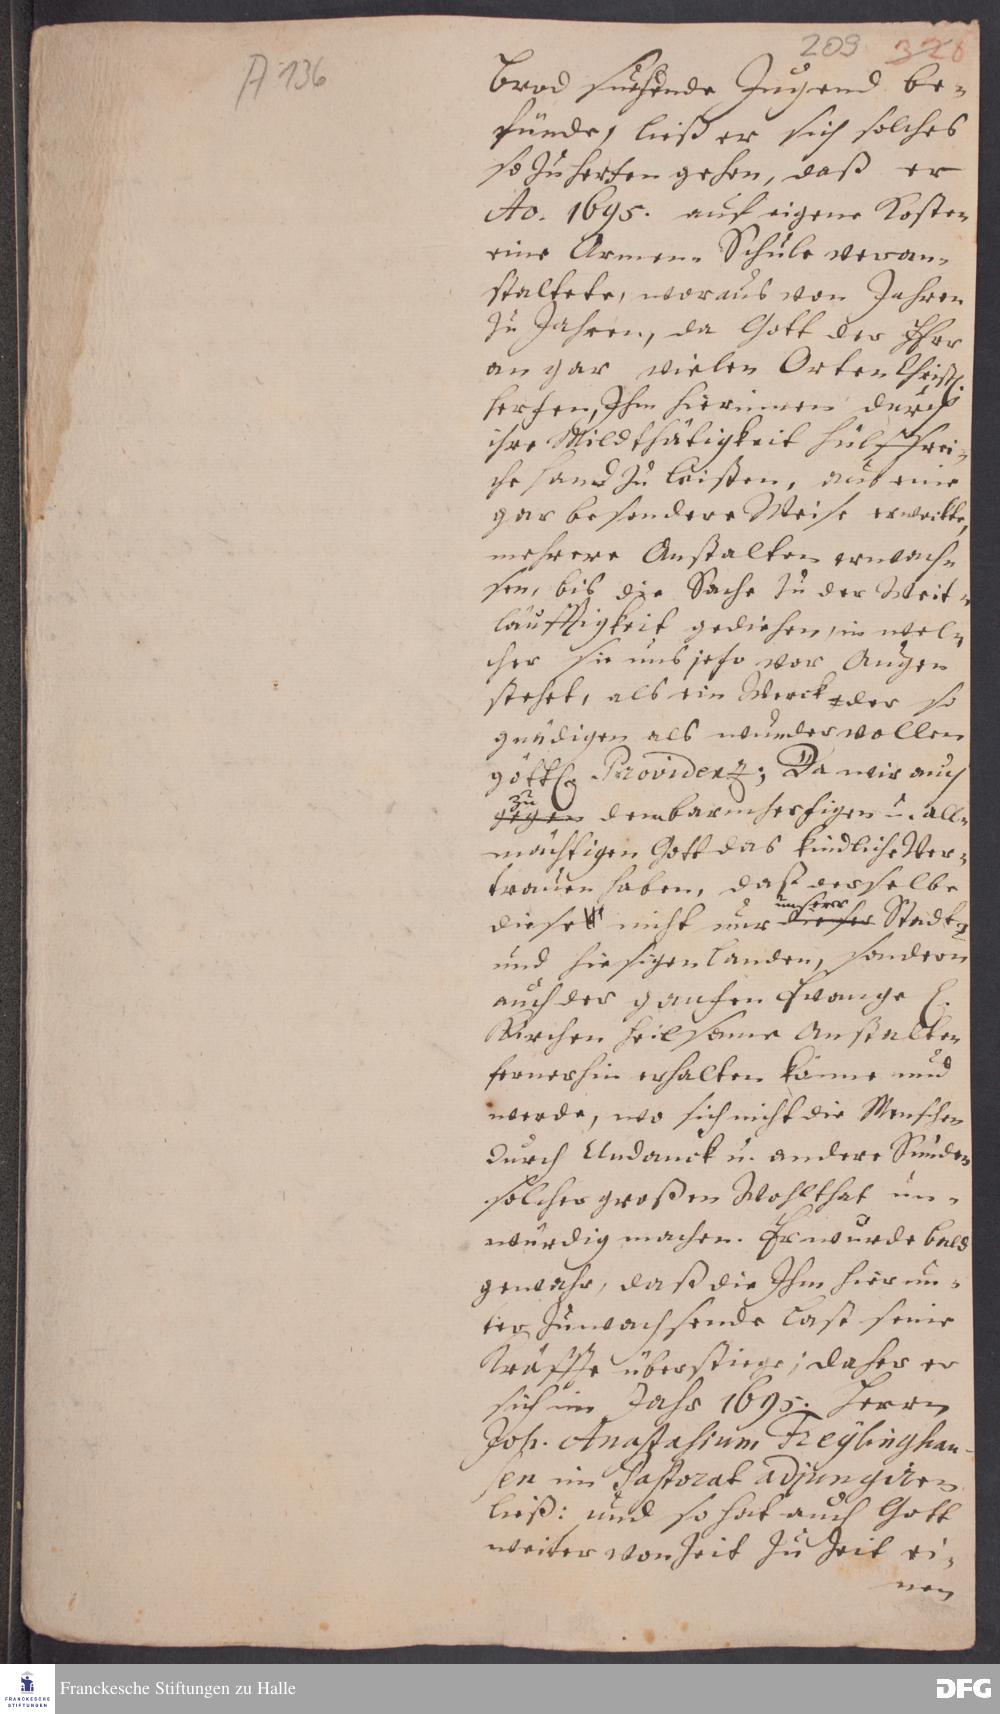 A 136
209 326
Brod suchende Jugend be-
fünde, ließ er sich solches
so zu hertzen gehen, daß er
Ao. 1695. auf eigene Kosten
eine Armen-Schule veran-
staltete, woraus von Jahren
zu Jahren, da Gott der Herr
an gar vielen Orten Christl.
hertzen, Ihm hierinnen durch
ihre Mildthätigkeit hülffrei-
che hand zu leisten, auf eine
gar besondere Weise erweckte,
mehrere Anstalten erwach-
sen, bis die Sache zu der Weit-
läufftigkeit gediehen, in wel-
cher sie uns jetzo vor Augen
stehet, als ein Werck der so
gnädigen als wundervollen
göttl. Providenz; Da wir auch
zu
gegen dem barmhertzigen u. all-
mächtigen Gott das kindliche Ver-
trauen haben, daß derselbe
unserer
diese nicht nur dieser Stadt
und hiesigen Landen, sondern
auch der gantzen Evangel.
Kirchen heilsame Anstalten
fernerhin erhalten könne und
werde, wo sich nicht die Menschen
durch Undanck u. andere Sünden
solcher großen Wohlthat un-
würdig machen. Er wurde bald
gewahr, daß die Ihm hierun-
ter zuwachsende Last seine
Kräffte überstiege; daher er
sich im Jahr 1695. Herrn
Joh. Anastasium Freylinghau-
sen im Pastorat adjungiren
ließ: und so hat auch Gott
weiter von Zeit zu Zeit ei-
nen
FRANCKESCHE STIFTUNGEN
Franckesche Stiftungen zu Halle
DFG